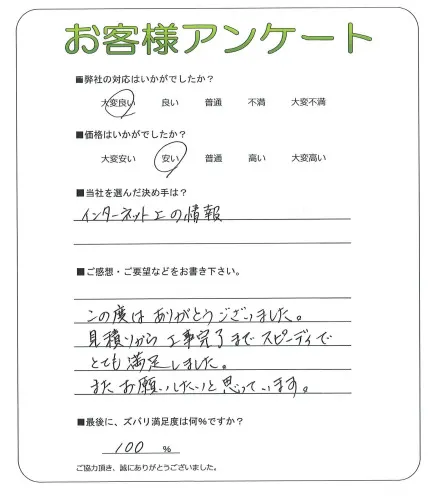 お客様アンケート
■弊社の対応はいかがでしたか?
大変良い 良い 普通 不満 大変不満
■価格はいかがでしたか?
大変安い 安い 普通 高い 大変高い
■当社を選んだ決め手は?
インターネット上の情報
■ご感想・ご要望などをお書き下さい。
この度は ありがとうございました。
見積りから 工事完了まで スピーディで
とても 満足しました。
また お願いしたいと 思っています。
■最後に、ズバリ満足度は何%ですか?
100 %
ご協力頂き、誠にありがとうございました。